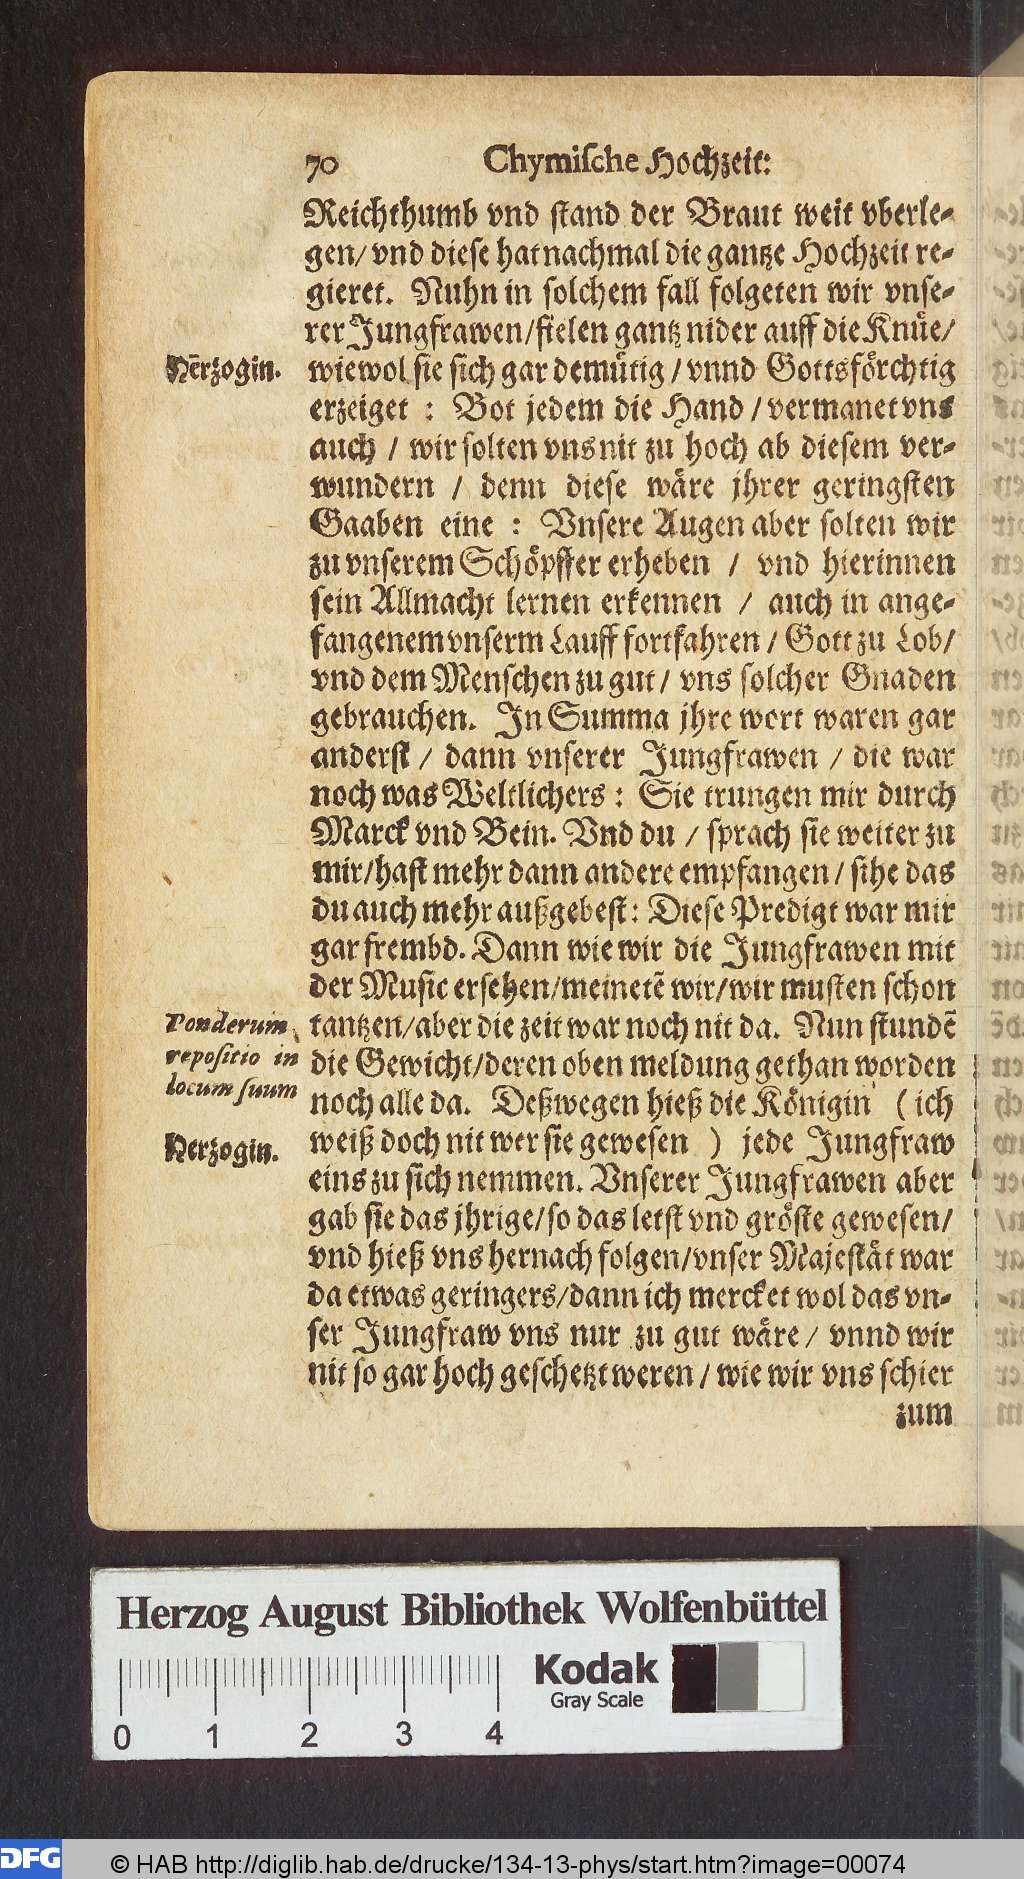 70 Chymische Hochzeit:
Reichthumb vnd stand der Braut weit vberle-
gen/ vnd diese hat nachmal die gantze Hochzeit re-
gieret. Nuhn in solchem fall folgeten wir vnse-
rer Jungfrawen/ fielen gantz nider auff die Knüe/
Herzogin.
wiewol sie sich gar demütig / vnnd Gottsförchtig
erzeiget : Bot jedem die Hand / vermanet vns
auch / wir solten vns nit zu hoch ab diesem ver-
wundern / denn diese wäre jhrer geringsten
Gaaben eine : Vnsere Augen aber solten wir
zu vnserem Schöpffer erheben / vnd hierinnen
sein Allmacht lernen erkennen / auch in ange-
fangenem vnserm Lauff fortfahren / Gott zu Lob/
vnd dem Menschen zu gut / vns solcher Gnaden
gebrauchen. In Summa jhre wort waren gar
anderst / dann vnserer Jungfrawen / die war
noch was Weltlichers : Sie trungen mir durch
Marck vnd Bein. Vnd du / sprach sie weiter zu
mir/ hast mehr dann andere empfangen / sihe das
du auch mehr außgebest : Diese Predigt war mir
gar frembd. Dann wie wir die Jungfrawen mit
der Music ersehen/ meinetē wir/ wir musten schon
Ponderum
repositio in
locum suum
tantzen/ aber die zeit war noch nit da. Nun stundē
die Gewicht/ deren oben meldung gethan worden
noch alle da. Deßwegen hieß die Königin ( ich
Herzogin.
weiß doch nit wer sie gewesen ) jede Jungfraw
eins zu sich nemmen. Vnserer Jungfrawen aber
gab sie das jhrige/ so das letst vnd gröste gewesen/
vnd hieß vns hernach folgen/ vnser Majestät war
da etwas geringers/ dann ich mercket wol das vn-
ser Jungfraw vns nur zu gut wäre/ vnnd wir
nit so gar hoch geschetzt weren / wie wir vns schier
zum
Herzog August Bibliothek Wolfenbüttel
Kodak
Gray Scale
0 1 2 3 4
DFG © HAB http://diglib.hab.de/drucke/134-13-phys/start.htm?image=00074